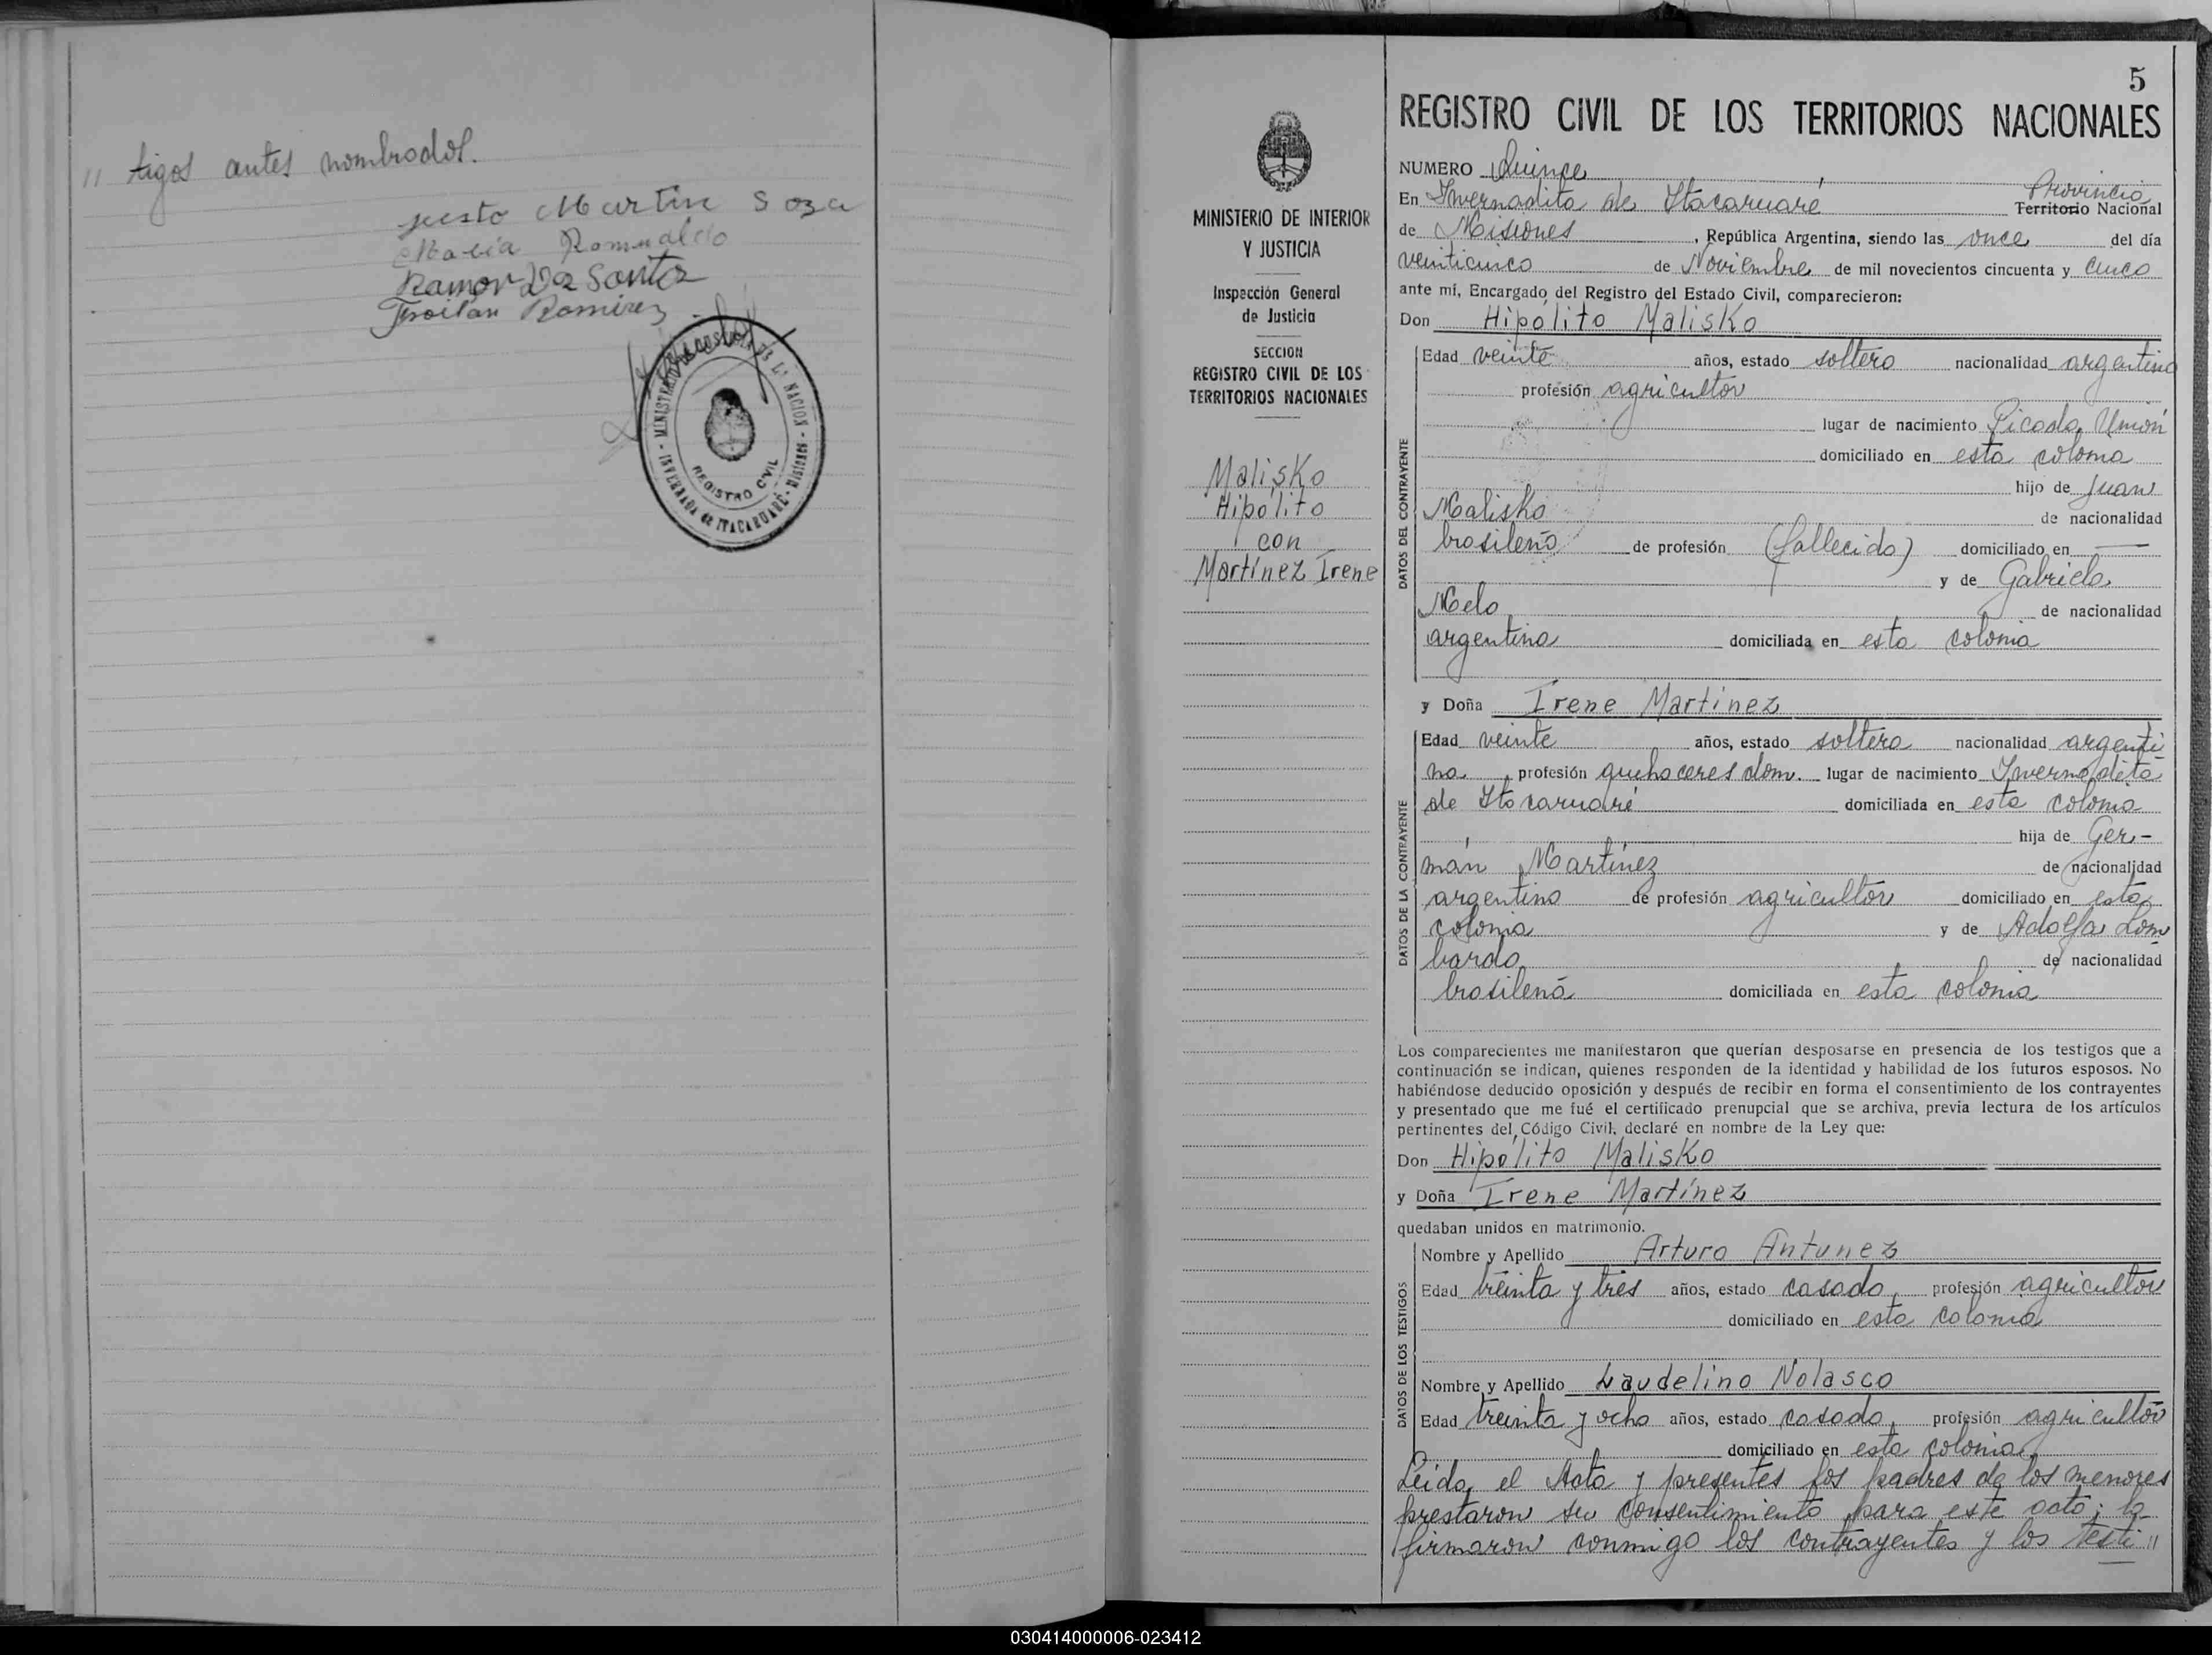 " tigos antes nombrados.
Justo Martin Soza
Maria Romualdo
Ramon Da Santos
Froilan Ramirez
MINISTERIO DE JUSTICIA DE LA NACION
REGISTRO CIVIL
INVERNADA de ITACARUARÉ - Misiones
MINISTERIO DE INTERIOR
Y JUSTICIA
Inspección General
de Justicia
SECCION
REGISTRO CIVIL DE LOS
TERRITORIOS NACIONALES
Malisko
Hipólito
con
Martínez Irene
5
REGISTRO CIVIL DE LOS TERRITORIOS NACIONALES
NUMERO Quince
Provincia
En Invernadita de Itacaruaré Territorio Nacional
de Misiones, República Argentina, siendo las once del día
veinticinco de Noviembre de mil novecientos cincuenta y cinco
ante mí, Encargado del Registro del Estado Civil, comparecieron:
Don Hipólito Malisko
DATOS DEL CONTRAYENTE
Edad veinte años, estado soltero nacionalidad argentino
profesión agricultor
lugar de nacimiento Picada Unión
domiciliado en esta colonia
hijo de Juan
Malisko de nacionalidad
brasileño de profesión (fallecido) domiciliado en —
y de Gabriela
Melo de nacionalidad
argentina domiciliada en esta colonia
y Doña Irene Martínez
DATOS DE LA CONTRAYENTE
Edad veinte años, estado soltera nacionalidad argenti
na, profesión quehaceres dom. lugar de nacimiento Invernadita
de Itacaruaré domiciliada en esta colonia
hija de Ger-
mán Martínez de nacionalidad
argentino de profesión agricultor domiciliado en esta
colonia y de Adolfa Lom
bardo de nacionalidad
brasileña domiciliada en esta colonia
Los comparecientes me manifestaron que querían desposarse en presencia de los testigos que a
continuación se indican, quienes responden de la identidad y habilidad de los futuros esposos. No
habiéndose deducido oposición y después de recibir en forma el consentimiento de los contrayentes
y presentado que me fué el certificado prenupcial que se archiva, previa lectura de los artículos
pertinentes del Código Civil, declaré en nombre de la Ley que:
Don Hipólito Malisko
y Doña Irene Martínez
quedaban unidos en matrimonio.
DATOS DE LOS TESTIGOS
Nombre y Apellido Arturo Antunez
Edad treinta y tres años, estado casado, profesión agricultor
domiciliado en esta colonia
Nombre y Apellido Laudelino Nolasco
Edad treinta y ocho años, estado casado, profesión agricultor
domiciliado en esta colonia,
Leida el Acta y presentes los padres de los menores
prestaron su consentimiento para este acto; la
firmaron conmigo los contrayentes y los testi "
030414000006-023412